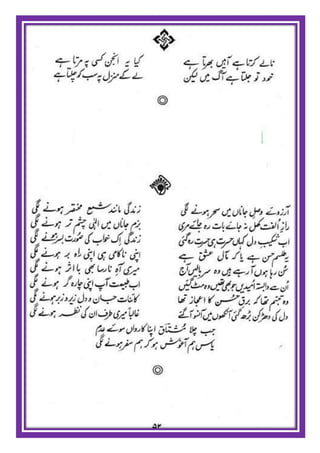 نالے کرتا ہے آہیں بھرتا ہے کیا یہ انجن کسی پہ مرتا ہے
خود تو جلتا ہے آگ میں لیکن لے کے منزل پہ سب کو چلتا ہے
آرزوئے وصلِ جاناں میں سحر ہونے لگی زندگی مانند شمع مختصر ہونے لگی
رازِ الفت کھل نہ جائے بات رہ جائے مری بزم جاناں میں الٰہی چشم تر ہونے لگی
اب شکیب دل کہاں حسرت ہی حسرت رہ گئی زندگی اک خواب کی صورت بسر ہونے لگی
یہ طلسم حسن ہے یا کہ مآل عشق ہے اپنی ناکامی ہی اپنی راہ بر ہونے لگی
سن رہا ہوں آرہے ہیں وہ سر بالیں آج میری آہِ نارسا بھی با اثر ہونے لگی
ان سے وابستہ امیدیں جو بھی تھیں وہ مٹ گئیں اب طبیعت آپ اپنی چارہ گر ہونے لگی
وہ تبسم تھا کہ برقِ حسن کا اعجاز تھا کائنات جان و دل زیر و زبر ہونے لگی
دل کی دھڑکن بڑھ گئی آنکھوں میں آنسو آگئے غالباً میری طرف ان کی نظر ہونے لگی
جب چلا مشتاق اپنا کارواں سوئے عدم
یاس ہم آغوش ہو کر ہم سفر ہونے لگی